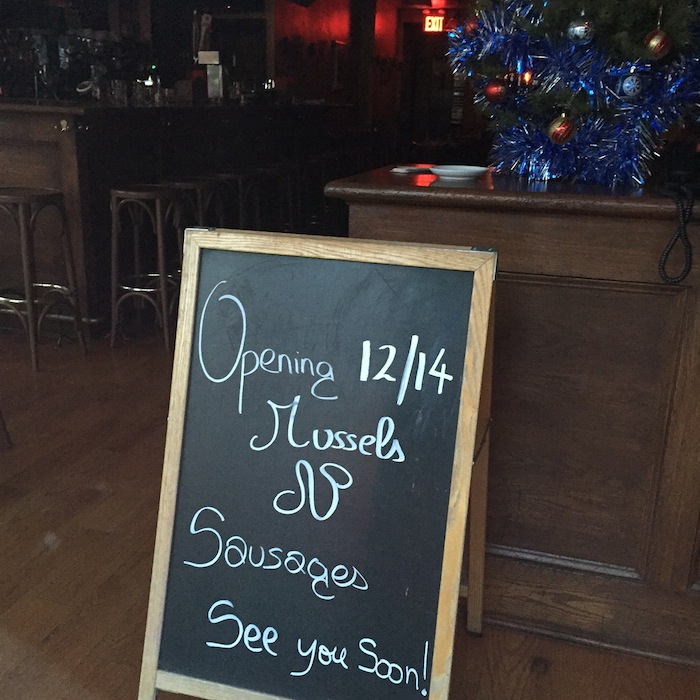 EXIT
Opening 12/14
Mussels
N
Sausages
See you Soon!